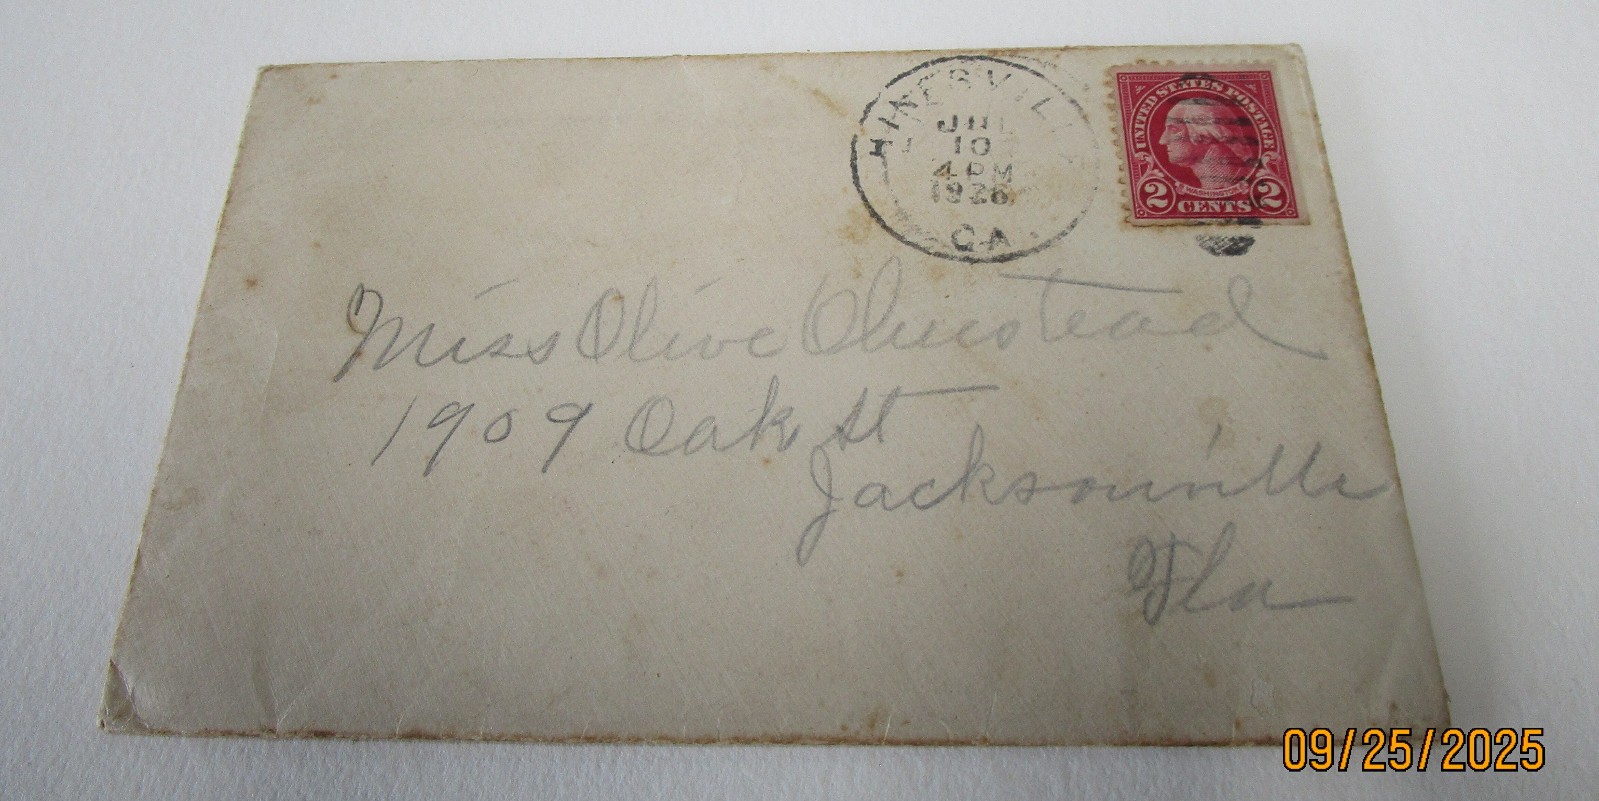 HINESVILLE
JUL
10
4 PM
1926
GA.
UNITED STATES POSTAGE
WASHINGTON
2 CENTS 2
Miss Olive Olmstead
1909 Oak St
Jacksonville
Fla
09/25/2025